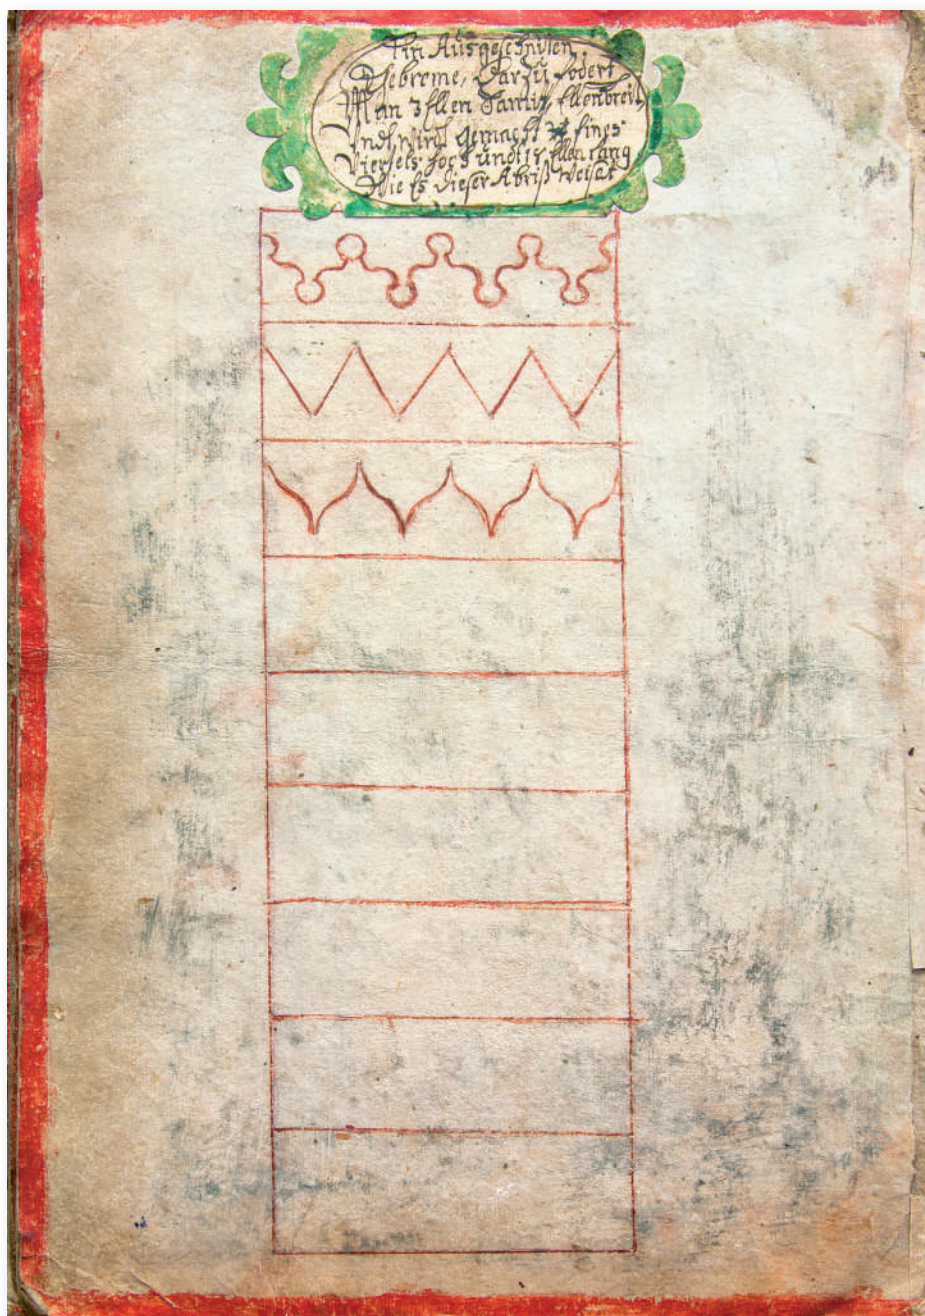 Ein Ausgeschniten
Gebreme, Darzu fodert
Man 3 Ellen Ellenbreit,
Undt wirdt gemacht Eines
Viertels hoch undt 15 Ellen lang
Wie Es dieser Abriß weisat